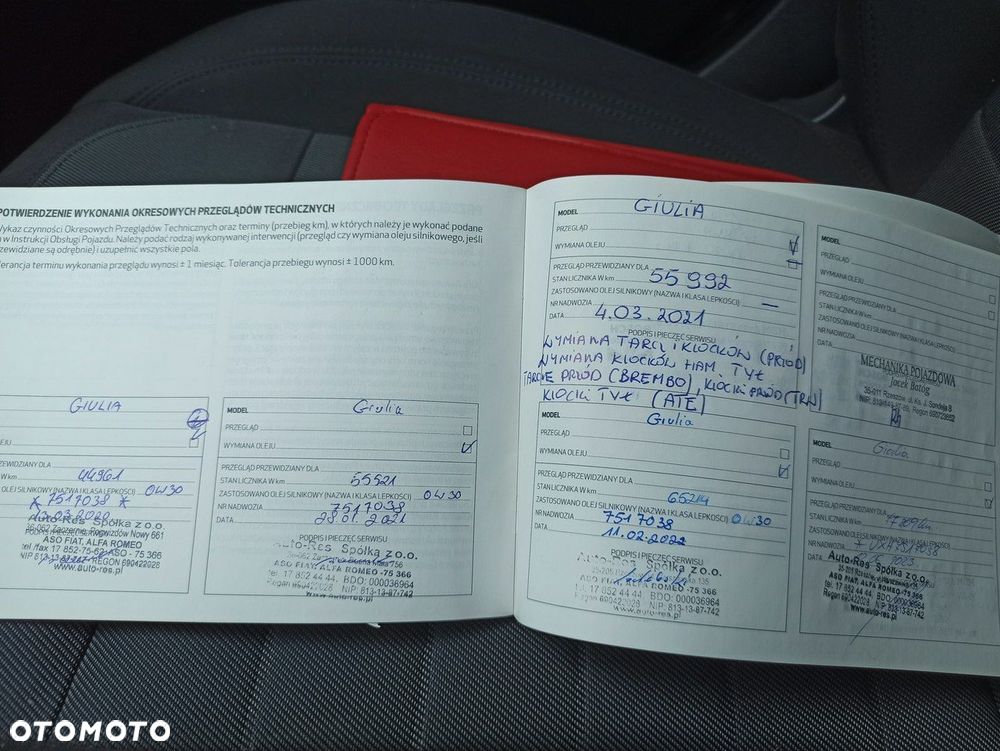 POTWIERDZENIE WYKONANIA OKRESOWYCH PRZEGLĄDÓW TECHNICZNYCH
Wykaz czynności Okresowych Przeglądów Technicznych oraz terminy (przebieg km), w których należy je wykonać podane
w Instrukcji Obsługi Pojazdu. Należy podać rodzaj wykonywanej interwencji (przegląd czy wymiana oleju silnikowego, jeśli
przewidziane są odrębnie) i uzupełnić wszystkie pola.
lerancja terminu wykonania przeglądu wynosi ± 1 miesiąc. Tolerancja przebiegu wynosi ± 1000 km.
GIULIA
EJU
ZEWIDZIANY DLA
W km 44961
OLEJ SILNIKOWY (NAZWA I KLASA LEPKOŚCI) 0W30
* 7517038 *
13.03.2020
Auto-Res Spółka z o.o.
ASO FIAT, ALFA ROMEO
tel /fax 17 852-75-62 ASO - 75 366
REGON 690422028
www.auto-res.pl
MODEL Giulia
PRZEGLĄD
WYMIANA OLEJU
PRZEGLĄD PRZEWIDZIANY DLA
STAN LICZNIKA W km 55521
ZASTOSOWANO OLEJ SILNIKOWY (NAZWA I KLASA LEPKOŚCI) 0W30
NR NADWOZIA 7517038
DATA 28.01.2021
PODPIS I PIECZĘĆ SERWISU
Auto-Res Spółka z o.o.
ASO FIAT ALFA ROMEO -75 366
Tel. 17 852 44 44, BDO: 000036964
Regon 690422028 NIP: 813-13-87-742
www.auto-res.pl
MODEL GIULIA
PRZEGLĄD
WYMIANA OLEJU
PRZEGLĄD PRZEWIDZIANY DLA
STAN LICZNIKA W km 55992
ZASTOSOWANO OLEJ SILNIKOWY (NAZWA I KLASA LEPKOŚCI) —
NR NADWOZIA
DATA 4.03.2021
PODPIS I PIECZĘĆ SERWISU
WYMIANA TARCZ I KLOCKÓW (PRZÓD)
WYMIANA KLOCKÓW HAM TYŁ
TARCZE PRZÓD (BREMBO), KLOCKI PRZÓD (TRW)
KLOCKI TYŁ (ATE)
MODEL Giulia
PRZEGLĄD
WYMIANA OLEJU
PRZEGLĄD PRZEWIDZIANY DLA
STAN LICZNIKA W km 65214
ZASTOSOWANO OLEJ SILNIKOWY (NAZWA I KLASA LEPKOŚCI) 0W30
NR NADWOZIA 7517038
DATA 11.02.2022
PODPIS I PIECZĘĆ SERWISU
Auto-Res Spółka z o.o.
ASO FIAT, ALFA ROMEO -75 366
Tel. 17 852 44 44, BDO: 000036964
Regon 690422028 NIP: 813-13-87-742
www.auto-res.pl
MODEL
PRZEGLĄD
WYMIANA OLEJU
PRZEGLĄD PRZEWIDZIANY DLA
STAN LICZNIKA W km
ZASTOSOWANO OLEJ SILNIKOWY (NAZWA I KLASA LEPKOŚCI)
NR NADWOZIA
DATA
MECHANIKA POJAZDOWA
Jacek Batóg
MODEL Giulia
PRZEGLĄD
WYMIANA OLEJU
PRZEGLĄD PRZEWIDZIANY DLA
STAN LICZNIKA W km
ZASTOSOWANO OLEJ SILNIKOWY (NAZWA I KLASA LEPKOŚCI)
NR NADWOZIA
DATA
Auto-Res Spółka z o.o.
ASO FIAT, ALFA ROMEO -75 366
Tel. 17 852 44 44, BDO: 000036964
Regon 690422028 NIP: 813-13-87-742
www.auto-res.pl
OTOMOTO